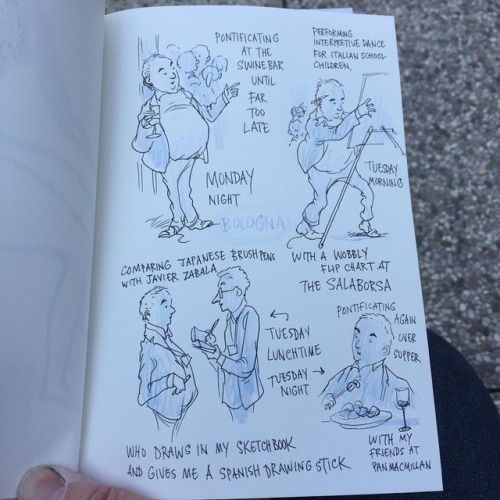 PONTIFICATING
AT THE
SWINE BAR
UNTIL
FAR
TOO
LATE
MONDAY
NIGHT
BOLOGNA
PERFORMING
INTERPRETIVE DANCE
FOR ITALIAN SCHOOL
CHILDREN,
TUESDAY
MORNING
WITH A WOBBLY
FLIP CHART AT
THE SALABORSA
COMPARING JAPANESE BRUSHPENS
WITH JAVIER ZABALA
TUESDAY
LUNCHTIME
WHO DRAWS IN MY SKETCHBOOK
AND GIVES ME A SPANISH DRAWING STICK
TUESDAY
NIGHT
PONTIFICATING
AGAIN
OVER
SUPPER
WITH MY
FRIENDS AT
PANMACMILLAN